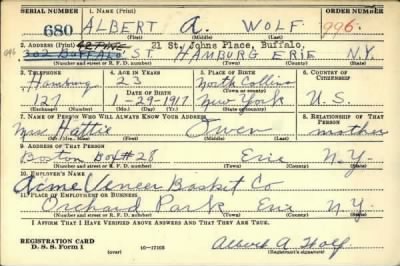 SERIAL NUMBER 1. NAME (Print) ORDER NUMBER
680 ALBERT A. WOLF 996.
(First) (Middle) (Last)
2. ADDRESS (Print) 21 St. Johns Place, Buffalo,
302 BUFFALO ST. HAMBURG ERIE N.Y.
(Number and street or R. F. D. number) (Town) (County) (State)
3. TELEPHONE 4. AGE IN YEARS 5. PLACE OF BIRTH 6. COUNTRY OF CITIZENSHIP
Hamburg 23 North Collins
DATE OF BIRTH (Town or county)
127 1-29-1917 New York U.S.
(Exchange) (Number) (Mo.) (Day) (Yr.) (State or country)
7. NAME OF PERSON WHO WILL ALWAYS KNOW YOUR ADDRESS 8. RELATIONSHIP OF THAT PERSON
Mrs Hattie Owen mother
(Mr., Mrs., Miss) (First) (Middle) (Last)
9. ADDRESS OF THAT PERSON
Boston Box # 28 Erie N.Y.
(Number and street or R. F. D. number) (Town) (County) (State)
10. EMPLOYER'S NAME
Acme Veneer Basket Co
11. PLACE OF EMPLOYMENT OR BUSINESS
Orchard Park Erie N.Y.
(Number and street or R. F. D. number) (Town) (County) (State)
I AFFIRM THAT I HAVE VERIFIED ABOVE ANSWERS AND THAT THEY ARE TRUE.
REGISTRATION CARD
D. S. S. Form 1 (over) 16-17105 Albert A Wolf
(Registrant's signature)